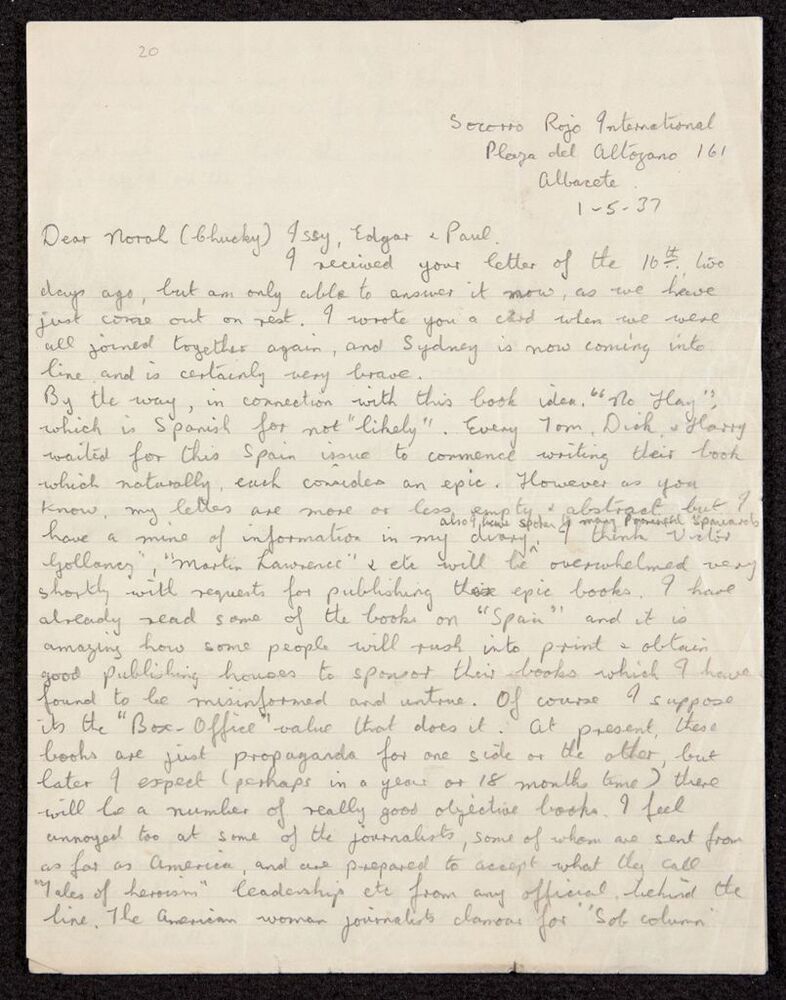 20
Socorro Rojo International
Plaza del Altozano 161
Albacete.
1-5-37
Dear Norah (Chucky) Issy, Edgar & Paul.
I received your letter of the 16th, two
days ago, but am only able to answer it now, as we have
just come out on rest. I wrote you a card when we were
all joined together again, and Sydney is now coming into
line and is certainly very brave.
By the way, in connection with this book idea. "No Hay",
which is Spanish for not "likely". Every Tom, Dick, & Harry
waited for this Spain issue to commence writing their book
which naturally, each considers an epic. However as you
know, my letters are more or less empty & abstract but I
also I have spoken to many Prominent Spaniards
have a mine of information in my diary, I think Victor
Gollancz", "Martin Lawrence" & etc will be overwhelmed very
shortly with requests for publishing their epic books. I have
already read some of the books on "Spain" and it is
amazing how some people will rush into print & obtain
good publishing houses to sponsor their books which I have
found to be misinformed and untrue. Of course I suppose
its the "Box-Office" value that does it. At present, these
books are just propaganda for one side or the other, but
later I expect (perhaps in a year or 18 months time) there
will be a number of really good objective books. I feel
annoyed too at some of the journalists, some of whom are sent from
as far as America, and are prepared to accept what they call
"Tales of heroism" leadership etc from any official behind the
line. The American woman journalists clamour for "Sob column"